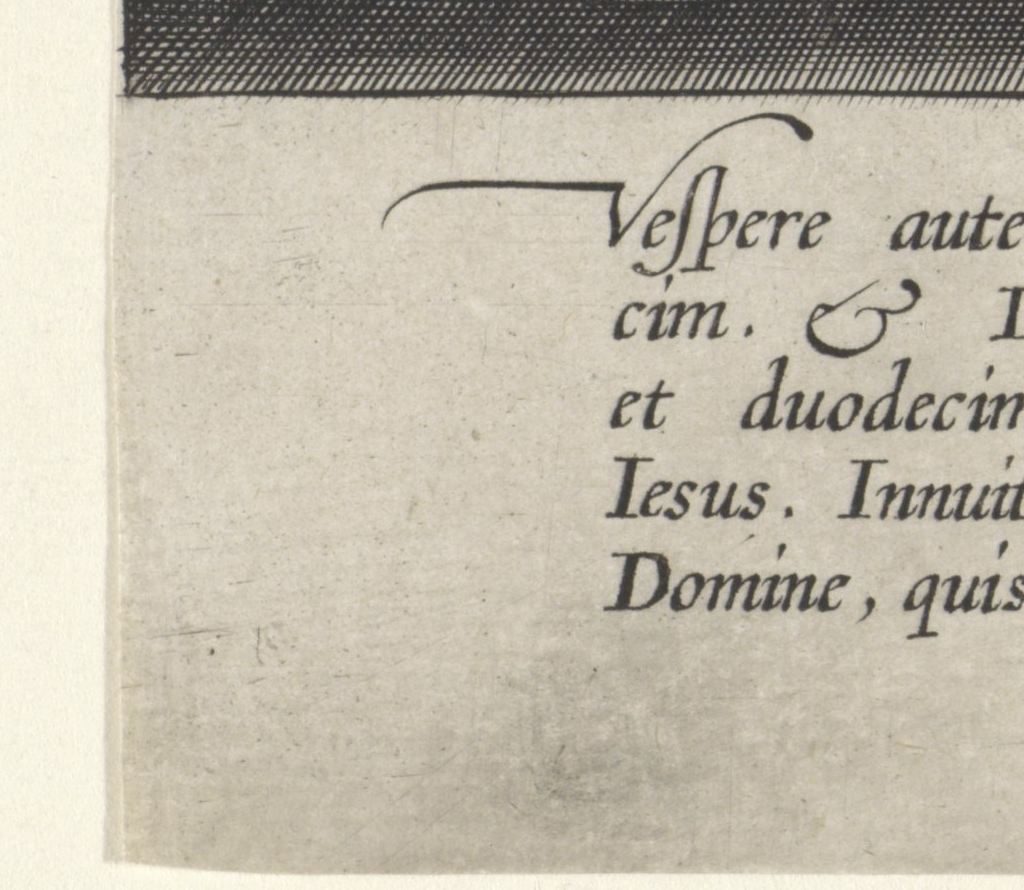 Veſpere aute
cim. &
et duodecim
Iesus. Innuit
Domine, quis